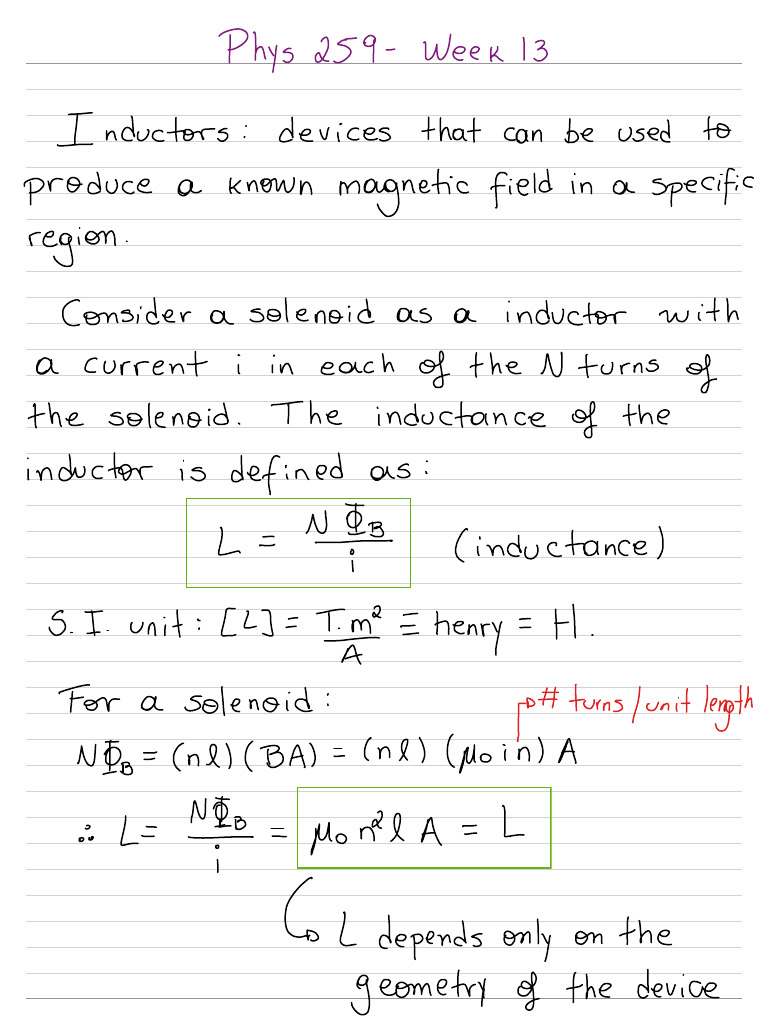 Phys 259 - Week 13
Inductors: devices that can be used to
produce a known magnetic field in a specific
region.
Consider a solenoid as a inductor with
a current i in each of the N turns of
the solenoid. The inductance of the
inductor is defined as:
L = NΦ_B / i (inductance)
S.I. unit: [L] = T.m² / A ≡ henry = H.
For a solenoid:
# turns / unit length
NΦ_B = (nl) (BA) = (nl) (μ₀in) A
∴ L = NΦ_B / i = μ₀ n² l A = L
L depends only on the
geometry of the device